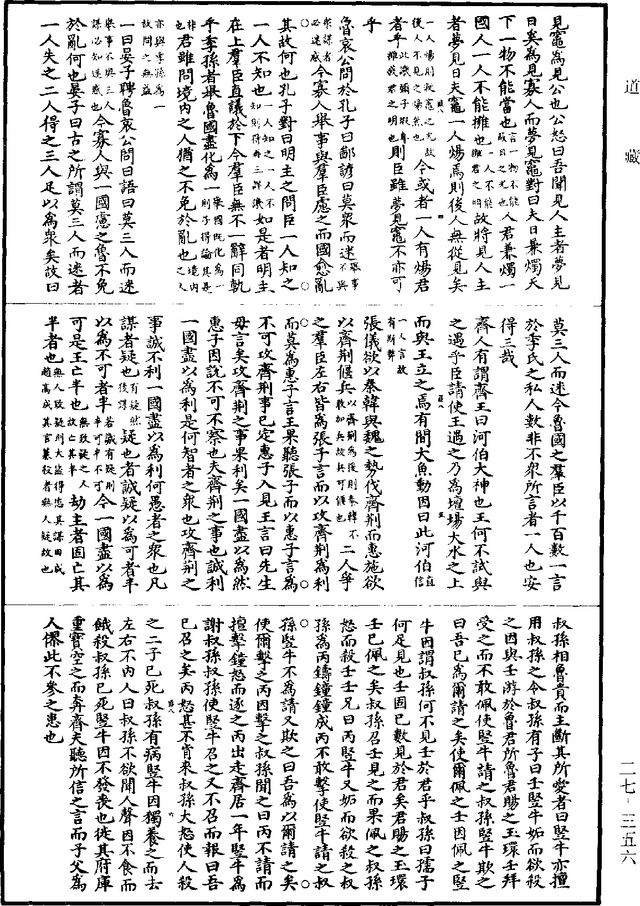 道藏
見竈為見公也公怒曰吾聞見人主者夢見
日奚為見寡人而夢見竈對曰夫日兼燭天
下一物不能當也言一物不能蔽日之光也人君兼燭一
國人一人不能擁也一人不能擁君之明故將見人主
者夢見日夫竈一人煬焉則後人無從見矣
一人煬則蔽竈之光故後人不見之
今或者一人有煬君
者乎
則臣雖夢見竈不亦可
乎
魯哀公問於孔子曰鄙諺曰莫衆而迷舉事不與
衆謀者必迷惑今寡人舉事與羣臣慮之而國愈亂
其故何也孔子對曰明主之問臣一人知之
一人不知也如是者明主
在上羣臣直議於下今羣臣無不一辭同軌
乎季孫者舉魯國盡化為一
君雖問境內之人猶之不免於亂也境內之人
亦與季孫為一故問之無益
一曰晏子聘魯哀公問曰語曰莫三人而迷
舉事不與三人謀必知迷惑也今寡人與一國慮之魯不免
於亂何也晏子曰古之所謂莫三人而迷者
一人失之二人得之三人足以為衆矣故曰
莫三人而迷今魯國之羣臣以千百數一言
於季氏之私人數非不衆所言者一人也安
得三哉
齊人有謂齊王曰河伯大神也王何不試與
之遇乎臣請使王遇之乃為壇場大水之上
而與王立之焉有閒大魚動因曰此河伯直信
一人言故有斯弊
張儀欲以秦韓與魏之勢伐齊荊而惠施欲
以齊荊偃兵二人爭
之羣臣左右皆為張子言而以攻齊荊為利
而莫為惠子言王果聽張子而以惠子言為
不可攻齊荊事已定惠子入見王言曰先生
毋言矣攻齊荊之事果利矣一國盡以為然
惠子因說不可不察也夫齊荊之事也誠利
一國盡以為利是何智者之衆也攻齊荊之
事誠不利一國盡以為利何愚者之衆也凡
謀者疑也有疑然後謀疑也者誠疑以為可者半
以為不可者半若誠有疑則半可半不可今一國盡以為
可是王亡半也無致疑之人故亡其半劫主者固亡其
半者也無人致疑則大盜得恣其謀田成趙高成其言簒殺者無人疑故也
叔孫相魯貴而主斷其所愛者曰豎牛亦擅
用叔孫之令叔孫有子曰壬豎牛妬而欲殺
之因與壬游於魯君所魯君賜之玉環壬拜
受之而不敢佩使豎牛請之叔孫豎牛欺之
曰吾已為爾請之矣使爾佩之壬因佩之豎
牛因謂叔孫何不見壬於君乎叔孫曰孺子
何足見也壬固已數見於君矣君賜之玉環
壬已佩之矣叔孫召壬見之而果佩之叔孫
怒而殺壬壬兄曰丙豎牛又妬而欲殺之叔
孫為丙鑄鐘鐘成丙不敢擊使豎牛請之叔
孫豎牛不為請又欺之曰吾為以爾請之矣
使爾擊之丙因擊之叔孫聞之曰丙不請而
擅擊鐘怒而逐之丙出走齊居一年豎牛為
謝叔孫叔孫使豎牛召之又不召而報曰吾
已召之矣丙怒甚不肯來叔孫大怒使人殺
之二子已死叔孫有病豎牛因獨養之而去
左右不內人曰叔孫不欲聞人聲因不食而
餓殺叔孫已死豎牛因不發喪也徙其府庫
重寶空之而奔齊夫聽所信之言而子父為
人僇此不參之患也
二七‧三五六